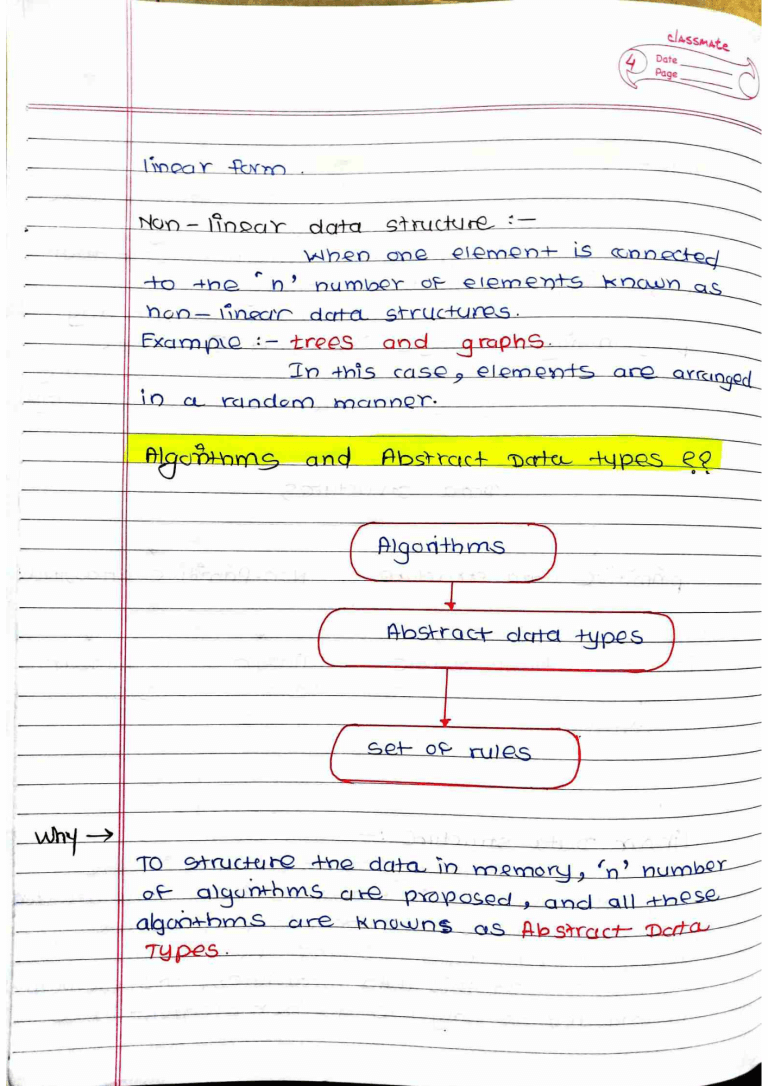 classmate
4
Date
Page
linear form.
Non-linear data structure :-
When one element is connected
to the 'n' number of elements known as
non-linear data structures.
Example :- trees and graphs.
In this case, elements are arranged
in a random manner.
Algorithms and Abstract Data types ??
Algorithms
Abstract data types
set of rules
Why →
To structure the data in memory, 'n' number
of algorithms are proposed, and all these
algorithms are knowns as Abstract Data
Types.